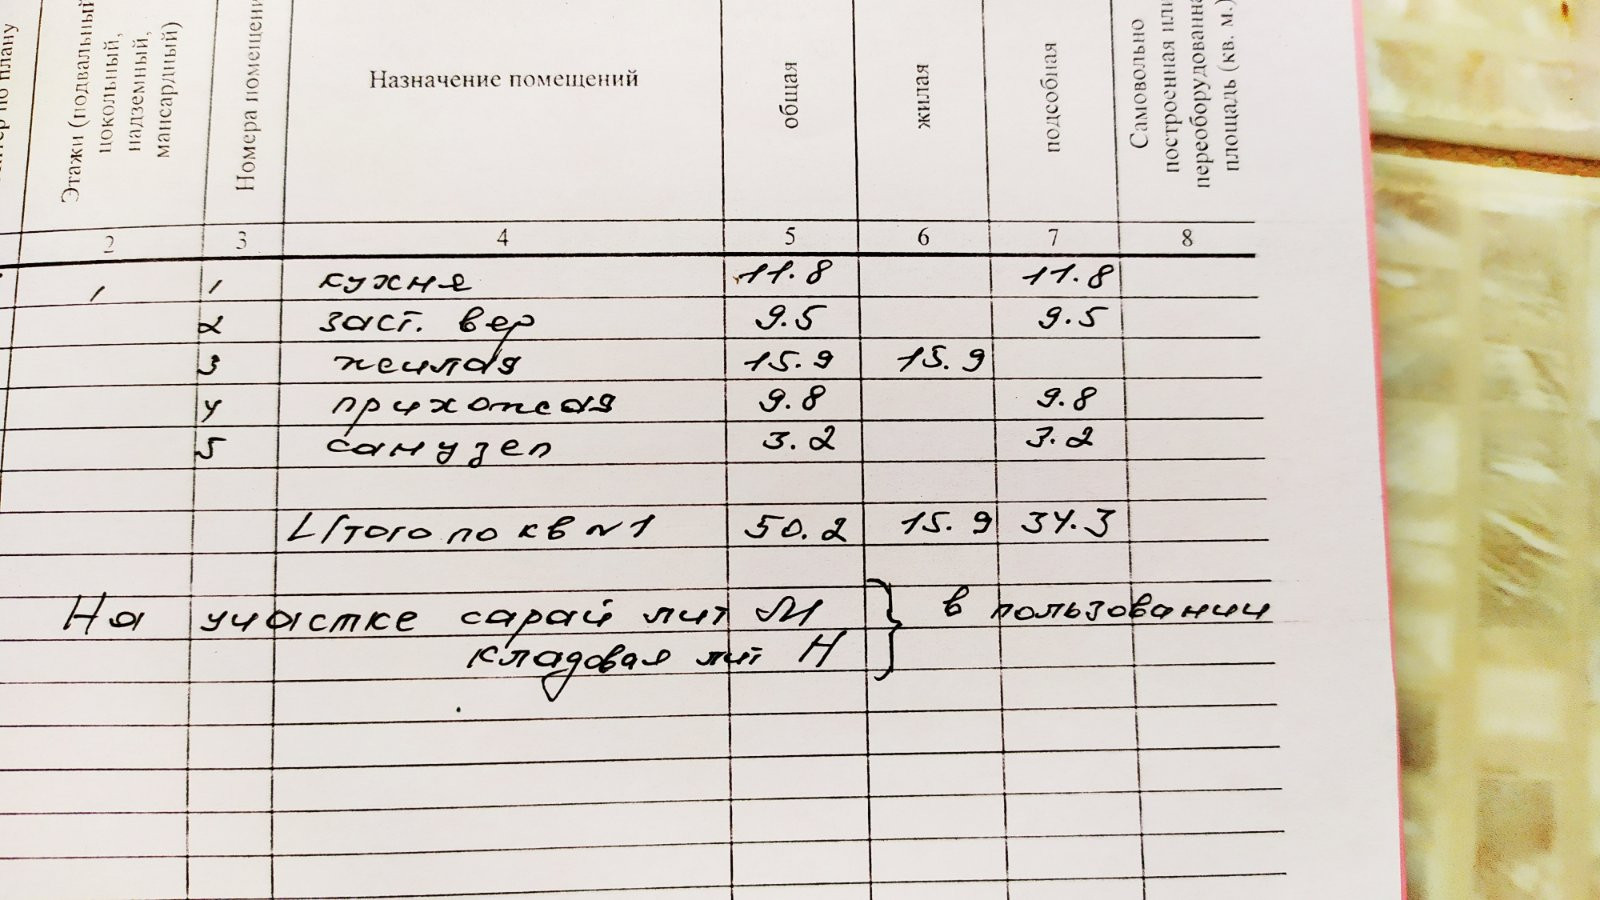 Этажи (подвальный
цокольный,
надземный,
мансардный)
Номера помещени
Назначение помещений
общая
жилая
подсобная
Самовольно
построенная или
переоборудованна
площадь (кв. м.)
2 3 4 5 6 7 8
1 1 кухня 11.8 11.8
2 заст. вер 9.5 9.5
3 жилая 15.9 15.9
4 прихожая 9.8 9.8
5 санузел 3.2 3.2
Итого по кв N1 50.2 15.9 34.3
На участке сарай лит М } в пользовании
кладовая лит Н